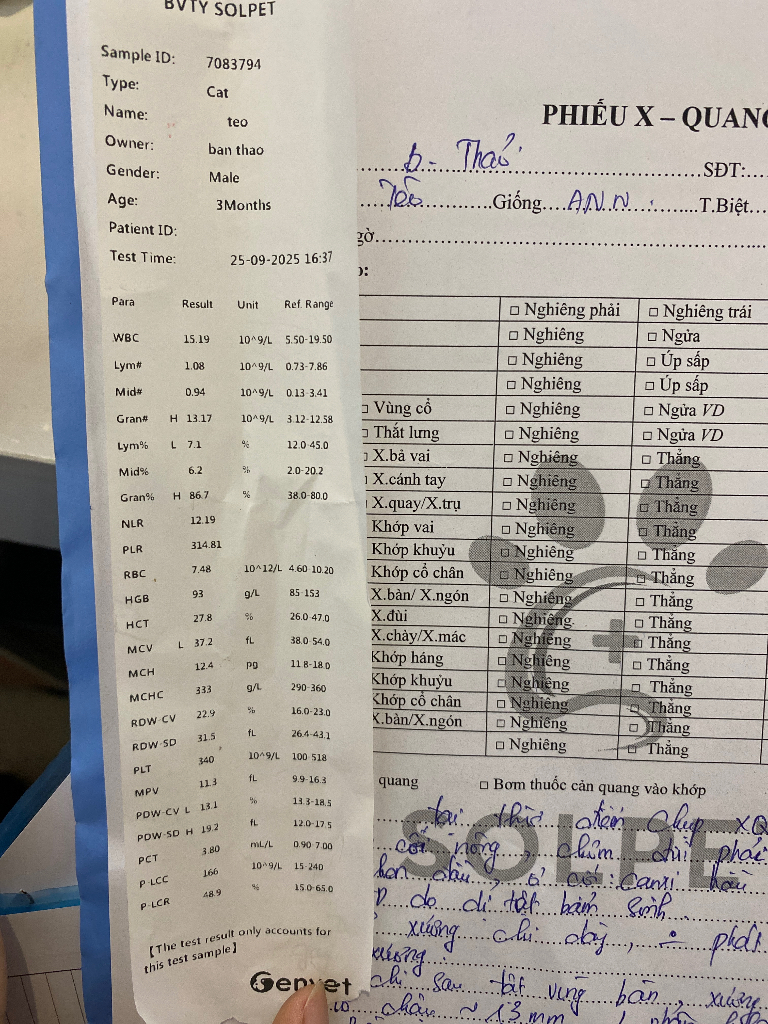 BVTY SOLPET
Sample ID: 7083794
Type: Cat
Name: teo
Owner: ban thao
Gender: Male
Age: 3Months
Patient ID:
Test Time: 25-09-2025 16:37
Para Result Unit Ref. Range
WBC 15.19 10^9/L 5.50-19.50
Lym# 1.08 10^9/L 0.73-7.86
Mid# 0.94 10^9/L 0.13-3.41
Gran# H 13.17 10^9/L 3.12-12.58
Lym% L 7.1 % 12.0-45.0
Mid% 6.2 % 2.0-20.2
Gran% H 86.7 % 38.0-80.0
NLR 12.19
PLR 314.81
RBC 7.48 10^12/L 4.60-10.20
HGB 93 g/L 85-153
HCT 27.8 % 26.0-47.0
MCV L 37.2 fL 38.0-54.0
MCH 12.4 pg 11.8-18.0
MCHC 333 g/L 290-360
RDW-CV 22.9 % 16.0-23.0
RDW-SD 31.5 fL 26.4-43.1
PLT 340 10^9/L 100-518
MPV 11.3 fL 9.9-16.3
PDW-CV L 13.1 % 13.3-18.5
PDW-SD H 19.2 fL 12.0-17.5
PCT 3.80 mL/L 0.90-7.00
P-LCC 166 10^9/L 15-240
P-LCR 48.9 % 15.0-65.0
【The test result only accounts for
this test sample】
Genvet
PHIẾU X – QUANG
b- Thảo SĐT:
Tèo Giống A.N.N T.Biệt
gờ
□ Nghiêng phải □ Nghiêng trái
□ Nghiêng □ Ngửa
□ Nghiêng □ Úp sấp
□ Nghiêng □ Úp sấp
□ Vùng cổ □ Nghiêng □ Ngửa VD
□ Thắt lưng □ Nghiêng □ Ngửa VD
□ X.bả vai □ Nghiêng □ Thẳng
□ X.cánh tay □ Nghiêng □ Thẳng
X.quay/X.trụ □ Nghiêng □ Thẳng
Khớp vai □ Nghiêng □ Thẳng
Khớp khuỷu □ Nghiêng □ Thẳng
Khớp cổ chân □ Nghiêng □ Thẳng
X.bàn/ X.ngón □ Nghiêng □ Thẳng
X.đùi □ Nghiêng □ Thẳng
X.chày/X.mác □ Nghiêng □ Thẳng
Khớp háng □ Nghiêng □ Thẳng
Khớp khuỷu □ Nghiêng □ Thẳng
Khớp cổ chân □ Nghiêng □ Thẳng
X.bàn/X.ngón □ Nghiêng □ Thẳng
□ Nghiêng □ Thẳng
quang □ Bơm thuốc cản quang vào khớp
SOLPE
tại thời điểm chụp XQ
phải
do dị tật bẩm sinh
xương chi
xương
chi sau tật vùng bàn, xương
chân ~ 13 mm